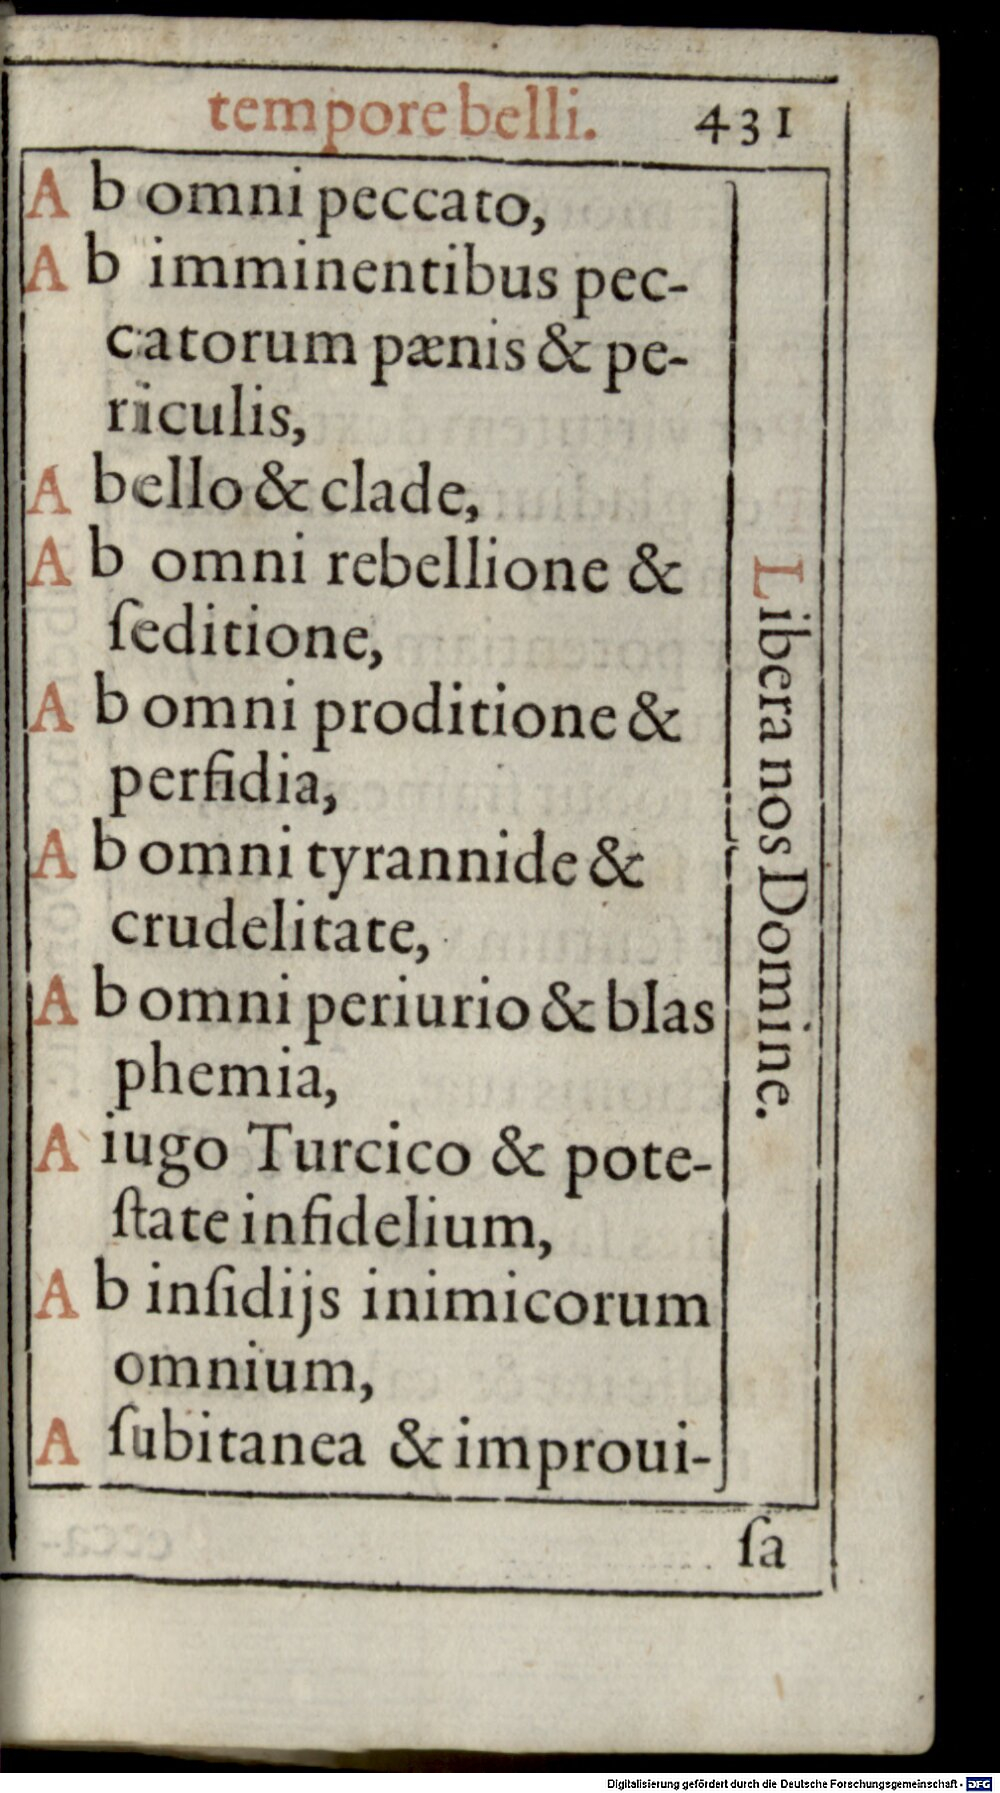 tempore belli. 431
Ab omni peccato,
Ab imminentibus pec-
catorum pænis & pe-
riculis,
A bello & clade,
Ab omni rebellione &
ſeditione,
Ab omni proditione &
perfidia,
Ab omni tyrannide &
crudelitate,
Ab omni periurio & blas
phemia,
A iugo Turcico & pote-
ſtate infidelium,
Ab inſidijs inimicorum
omnium,
A ſubitanea & improui-
Libera nos Domine.
ſa
Digitalisierung gefördert durch die Deutsche Forschungsgemeinschaft - DFG